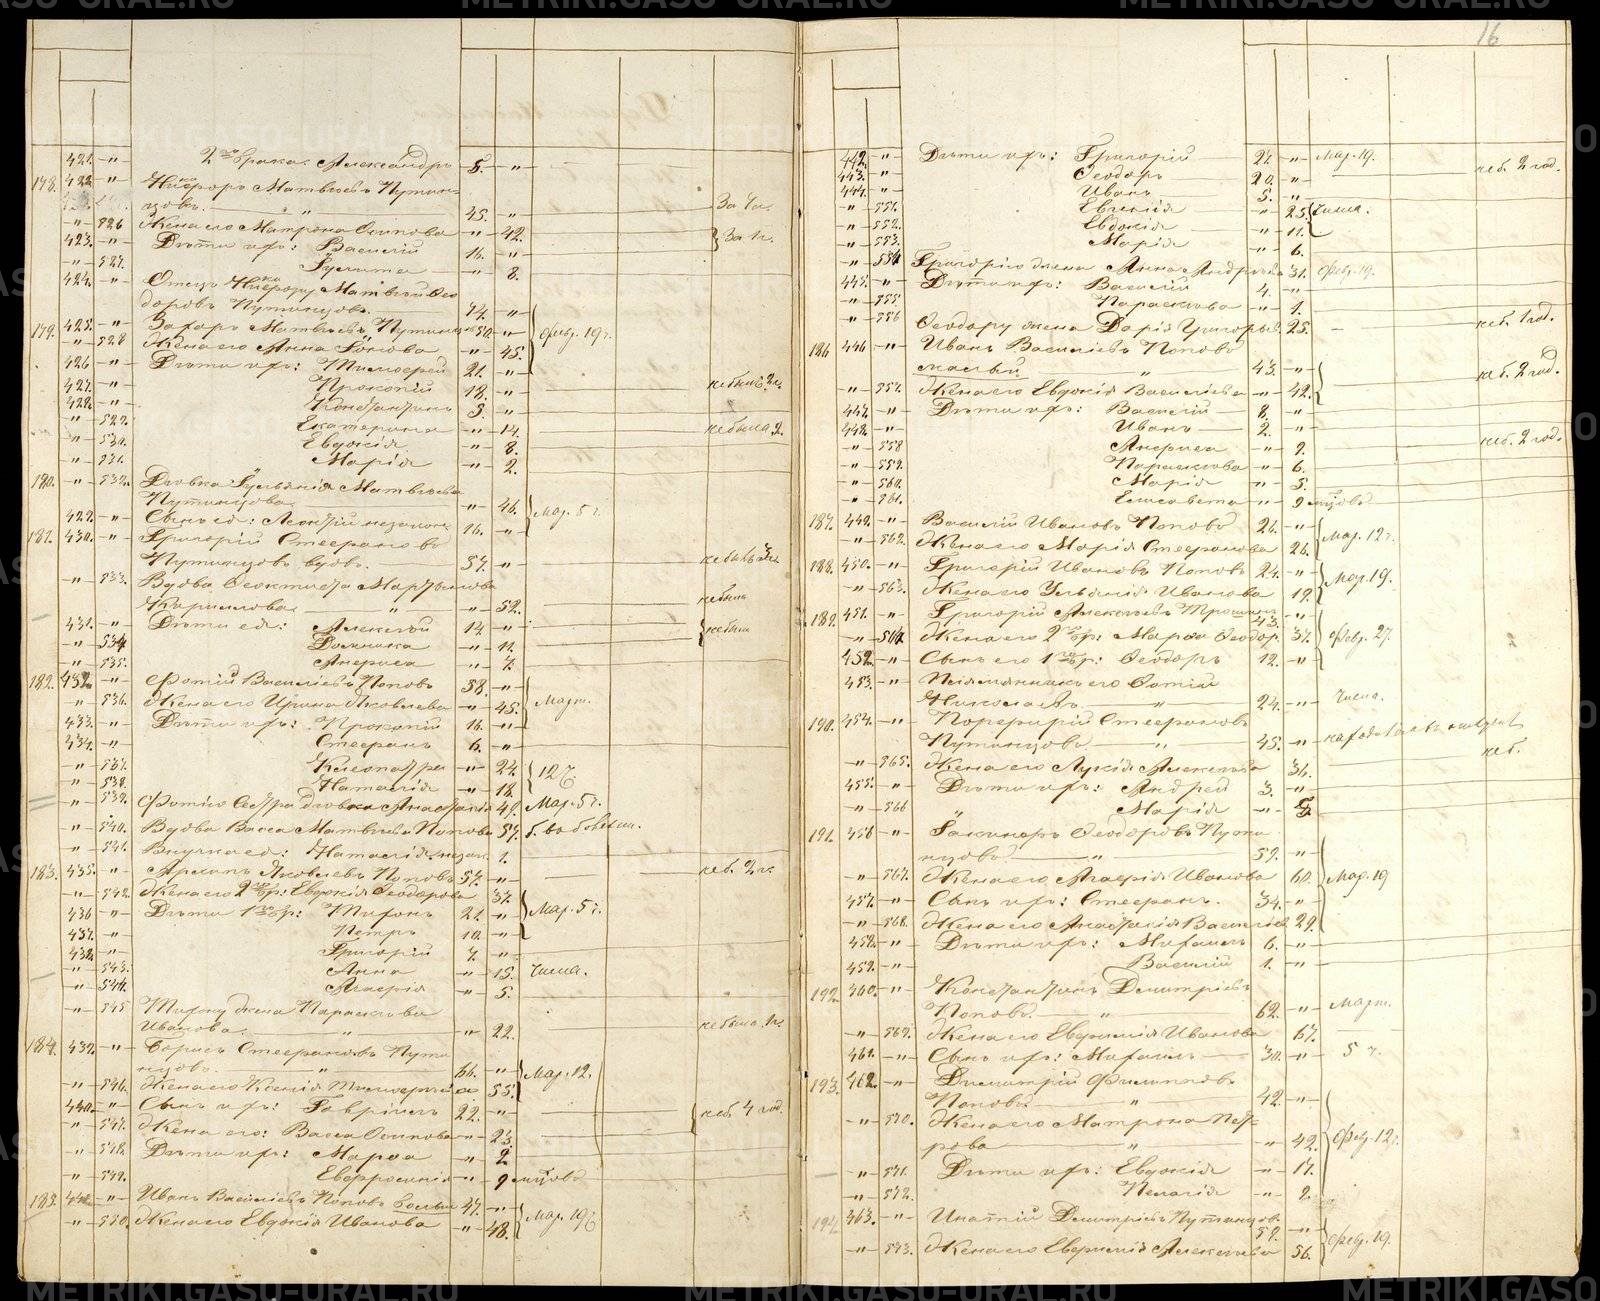 16
421. -"- 2го брака: Александръ 8. -"-
178. 422 -"- Никифоръ Матвѣевъ Путин-
цовъ. " 45. -"- За 4 г.
-"- 526 Жена его Матрона Осипова -"- 42. За 1 г.
423. -"- Дѣти ихъ: Василій 16. -"-
-"- 527. Іулитта -"- 8.
424. -"- Отецъ Никифору Матвѣй Ѳео
доровъ Путинцовъ. 74. -"-
179. 425. -"- Захаръ Матвѣевъ Путинцовъ 50. -"- Февр. 19 г.
-"- 528 Жена его Анна Іонова -"- 45.
426 -"- Дѣти ихъ: Тимоѳей 21. -"-
427. -"- Прокопій 18. -"- не былъ 2 г.
428. -"- Константинъ 3. -"-
-"- 529. Екатерина -"- 14. не была 2.
-"- 530. Евдокія -"- 8.
-"- 531. Марія -"- 2.
180. -"- 532. Дѣвка Іуліанія Матвѣева
Путинцова -"- 46. Мар. 5 г.
429. -"- Сынъ ея: Леонтій незакон. 16. -"-
181. 430. -"- Григорій Стефановъ
Путинцовъ вдовъ. 57. -"- не былъ 3 г.
-"- 533. Вдова Ѳеоктиста Мартынова
Кириллова " -"- 52. не была
431. -"- Дѣти ея: Алексѣй 14. -"- не были
-"- 534 Домника -"- 11.
-"- 535. Анфиса -"- 7.
182. 432. -"- Фотій Васильевъ Поповъ 58. -"-
-"- 536. Жена его Ирина Яковлева -"- 45. Март.
433. -"- Дѣти ихъ: Прокопій 16. -"-
434. -"- Стефанъ 6. -"-
-"- 537. Клеопатра -"- 24. 12 г.
-"- 538. Наталія -"- 18.
-"- 539. Фотію сестра дѣвка Анастасія 49. Мар. 5 г.
-"- 540. Вдова Васса Матвѣева Попова 57.
-"- 541. Внучка ея: Наталія незак. 1.
183. 435. -"- Яковлевъ Поповъ 57. -"- не б. 2 г.
-"- 542. Жена его 2го бр: Евдокія Ѳеодорова 37.
436 -"- Дѣти 1го бр: Миронъ 21. -"- Мар. 5 г.
437. -"- Петръ 10. -"-
438. -"- Григорій 7. -"-
-"- 543. Анна -"- 15.
-"- 544. Агафія -"- 5.
-"- 545 Мирону жена Параскева
Иванова. " -"- 22. не была 1 г.
184. 439. -"- Борисъ Стефановъ Пути
нцовъ. " 66. -"- Мар. 12.
-"- 546. Жена его Ксенія Тимоѳеева 55.
440. -"- Сынъ ихъ: Гавріилъ 22. -"- не б. 4 год.
-"- 547. Жена его: Васса Осипова -"- 23.
-"- 548. Дѣти ихъ: Марѳа -"- 2
-"- 549. Евфросинія -"- 9 мѣсяцовъ
185. 441. -"- Иванъ Васильевъ Поповъ большій 47. -"- Мар. 19 г.
-"- 550. Жена его Евдокія Иванова -"- 48.
442. -"- Дѣти ихъ: Григорій 27. -"- Мар. 19.
443. -"- Ѳеодоръ 20. -"- не б. 2 год.
444. -"- Иванъ 5. -"-
-"- 551. Евгенія -"- 25.
-"- 552. Евдокія -"- 11.
-"- 553. Марія -"- 6.
-"- 554 Григорію жена Анна Андреева 31. Февр. 19.
445. -"- Дѣти ихъ: Василій 4. -"-
-"- 555. Параскева -"- 1.
-"- 556 Ѳеодору жена Дарія Григорьева 25. не б. 1 год.
186 446 -"- Иванъ Васильевъ Поповъ
малый " 43. -"- не б. 2 год.
-"- 557. Жена его Евдокія Васильева -"- 42.
447. -"- Дѣти ихъ: Василій 8. -"-
448. -"- Иванъ 2. -"-
-"- 558 Анфиса -"- 9. не б. 2 год.
-"- 559. Параскева -"- 6.
-"- 560. Марія -"- 5.
-"- 561. Елисавета -"- 9 мѣсяцовъ
187. 449. -"- Василій Ивановъ Поповъ 26. -"- Мар. 12 г.
-"- 562. Жена его Марія Стефанова 26.
188. 450. -"- Григорій Ивановъ Поповъ 24. -"- Мар. 19.
-"- 563. Жена его Ульянія Иванова 19.
189. 451. -"- Григорій Алексѣевъ 43. -"-
-"- 564 Жена его 2го бр: Марѳа Ѳеодор. 37. Февр. 27.
452. -"- Сынъ его 1го бр: Ѳеодоръ 12. -"-
453. -"- Племянникъ его Фотій
Николаевъ. " 24. -"-
190. 454. -"- Порфирій Стефановъ
Путинцовъ " 45. -"-
-"- 565. Жена его Лукія Алексѣева 36. не б.
455. -"- Дѣти ихъ: Андрей 3. -"-
-"- 566 Марія -"- 5.
191. 456 -"- Іакинфъ Ѳеодоровъ Пути
нцовъ " 59. -"-
-"- 567. Жена его Агафія Иванова 60. Мар. 19
457. -"- Сынъ ихъ: Стефанъ. 34. -"-
-"- 568. Жена его Анастасія Васильева 29.
458. -"- Дѣти ихъ: Михаилъ 6. -"-
459. -"- Василій 1. -"-
192. 460. -"- Константинъ Димитріевъ
Поповъ. " 62. -"- Март.
-"- 569. Жена его Евфимія Иванова 67.
461. -"- Сынъ ихъ: Михаилъ 30. -"- 5 г.
193. 462. -"- Димитрій Филипповъ
Поповъ. " 42. -"-
-"- 570. Жена его Матрона Пет-
рова " -"- 42. Февр. 12 г.
-"- 571. Дѣти ихъ: Евдокія -"- 17.
-"- 572. Пелагія -"- 2.
194. 463. -"- Игнатій Димитріевъ Путинцовъ 59. -"- Февр. 19.
-"- 573. Жена его Евфимія Алексѣева 56.
METRIKI.GASO-URAL.RU